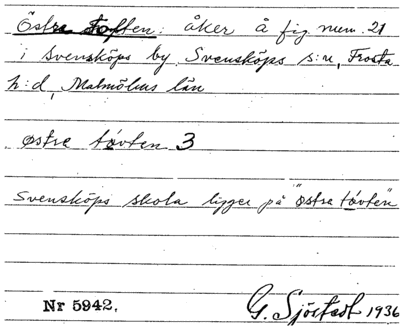 Östre toften: åker å fig. num. 21
i Svensköps by, Svensköps s:n, Frosta
h:d, Malmöhus län
østre tóvten 3
Svensköps skola ligger på "østre tóvten"
Nr 5942. G. Sjöstedt 1936